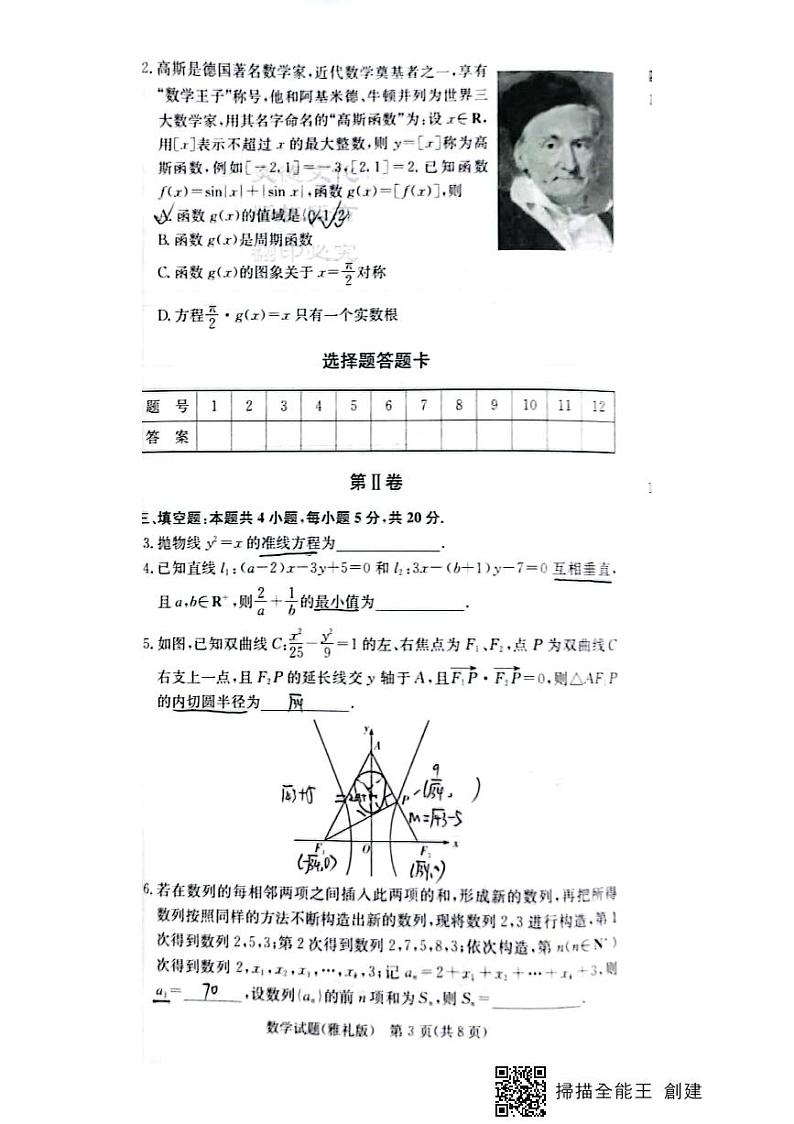 2. 高斯是德国著名数学家,近代数学奠基者之一,享有
“数学王子”称号,他和阿基米德、牛顿并列为世界三
大数学家,用其名字命名的“高斯函数”为:设 x∈R,
用[x]表示不超过 x 的最大整数,则 y=[x]称为高
斯函数,例如[-2.1]=-3,[2.1]=2. 已知函数
f(x)=sin|x|+|sin x|,函数 g(x)=[f(x)],则
A. 函数 g(x)的值域是{0,1,2}
B. 函数 g(x)是周期函数
C. 函数 g(x)的图象关于 x=π/2 对称
D. 方程 π/2 · g(x)=x 只有一个实数根
选择题答题卡
题 号 1 2 3 4 5 6 7 8 9 10 11 12
答 案
第Ⅱ卷
三、填空题:本题共 4 小题,每小题 5 分,共 20 分.
3. 抛物线 y²=x 的准线方程为____________.
4. 已知直线 l₁:(a-2)x-3y+5=0 和 l₂:3x-(b+1)y-7=0 互相垂直,
且 a,b∈R⁺,则 2/a + 1/b 的最小值为____________.
5. 如图,已知双曲线 C: x²/25 - y²/9 =1 的左、右焦点为 F₁、F₂,点 P 为双曲线 C
右支上一点,且 F₂P 的延长线交 y 轴于 A,且 F₁P · F₂P=0,则△AF₁P
的内切圆半径为 √34 .
y
A
√43+5
P
(√34, 9 )
m=√43-5
F₁ O F₂ x
(-√34,0) (√34,0)
6. 若在数列的每相邻两项之间插入此两项的和,形成新的数列,再把所得
数列按照同样的方法不断构造出新的数列,现将数列 2,3 进行构造,第 1
次得到数列 2,5,3;第 2 次得到数列 2,7,5,8,3;依次构造,第 n(n∈N*)
次得到数列 2,x₁,x₂,x₃,⋯,xₖ,3;记 aₙ=2+x₁+x₂+⋯+xₖ+3,则
a₃= 70 ,设数列{aₙ}的前 n 项和为 Sₙ,则 Sₙ=____________.
数学试题(雅礼版) 第 3 页(共 8 页)
掃描全能王 創建